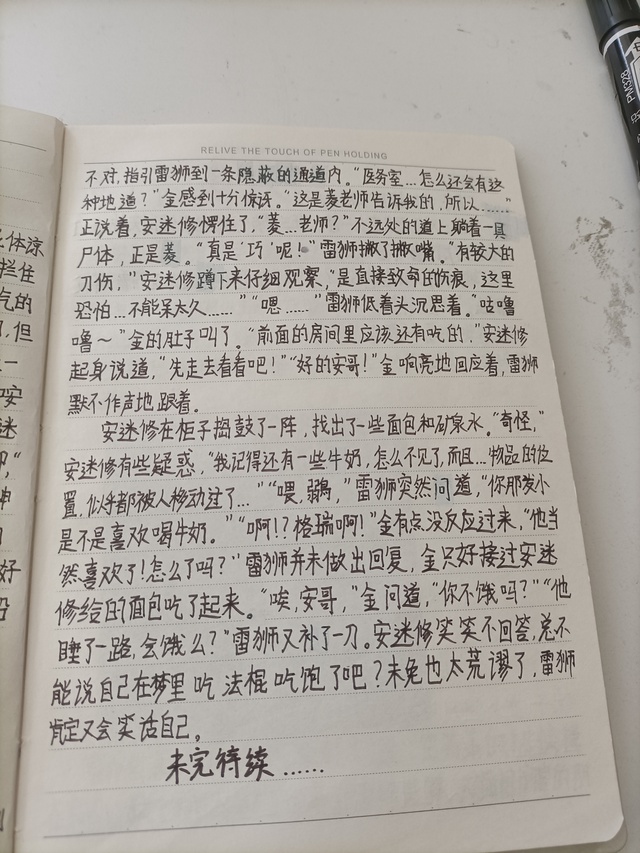 RELIVE THE TOUCH OF PEN HOLDING
不对，指引雷狮到一条隐蔽的通道内。“医务室…怎么还会有这
种地道？”金感到十分惊讶。“这是菱老师告诉我的，所以……”
正说着，安迷修愣住了，“菱…老师？”不远处的道上躺着一具
尸体，正是菱。“真是‘巧’呢！”雷狮撇了撇嘴。“有较大的
刀伤，”安迷修蹲下来仔细观察，“是直接致命的伤痕，这里
恐怕…不能呆太久……”“嗯……”雷狮低着头沉思着。“咕噜
噜～”金的肚子叫了。“前面的房间里应该还有吃的，”安迷修
起身说道，“先走去看看吧！”“好的安哥！”金响亮地回应着，雷狮
默不作声地跟着。
安迷修在柜子捣鼓了一阵，找出了一些面包和矿泉水。“奇怪，”
安迷修有些疑惑，“我记得还有一些牛奶，怎么不见了，而且…物品的位
置，似乎都被人移动过了…”“喂，弱鸡，”雷狮突然问道，“你那发小
是不是喜欢喝牛奶。”“啊！？格瑞啊！”金有点没反应过来，“他当
然喜欢了！怎么了吗？”雷狮并未做出回复，金只好接过安迷
修给的面包吃了起来。“唉，安哥，”金问道，“你不饿吗？”“他
睡了一路，会饿么？”雷狮又补了一刀。安迷修笑笑不回答，总不
能说自己在梦里吃法棍吃饱了吧？未免也太荒谬了，雷狮
肯定又会笑话自己。
未完待续……
体凉
拦住
气的
但
一
安
迷
好
PM328